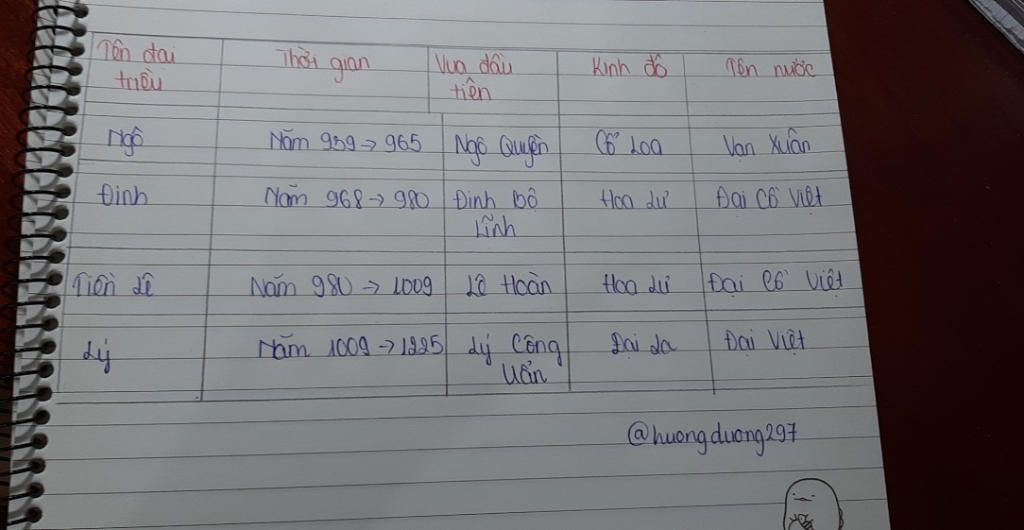 Tên đại triều Thời gian Vua đầu tiên Kinh đô Tên nước
Ngô Năm 939 → 965 Ngô Quyền Cổ Loa Vạn Xuân
Đinh Năm 968 → 980 Đinh Bộ Lĩnh Hoa Lư Đại Cồ Việt
Tiền Lê Năm 980 → 1009 Lê Hoàn Hoa Lư Đại Cồ Việt
Lý Năm 1009 → 1225 Lý Công Uẩn Đại La Đại Việt
@huongduong297